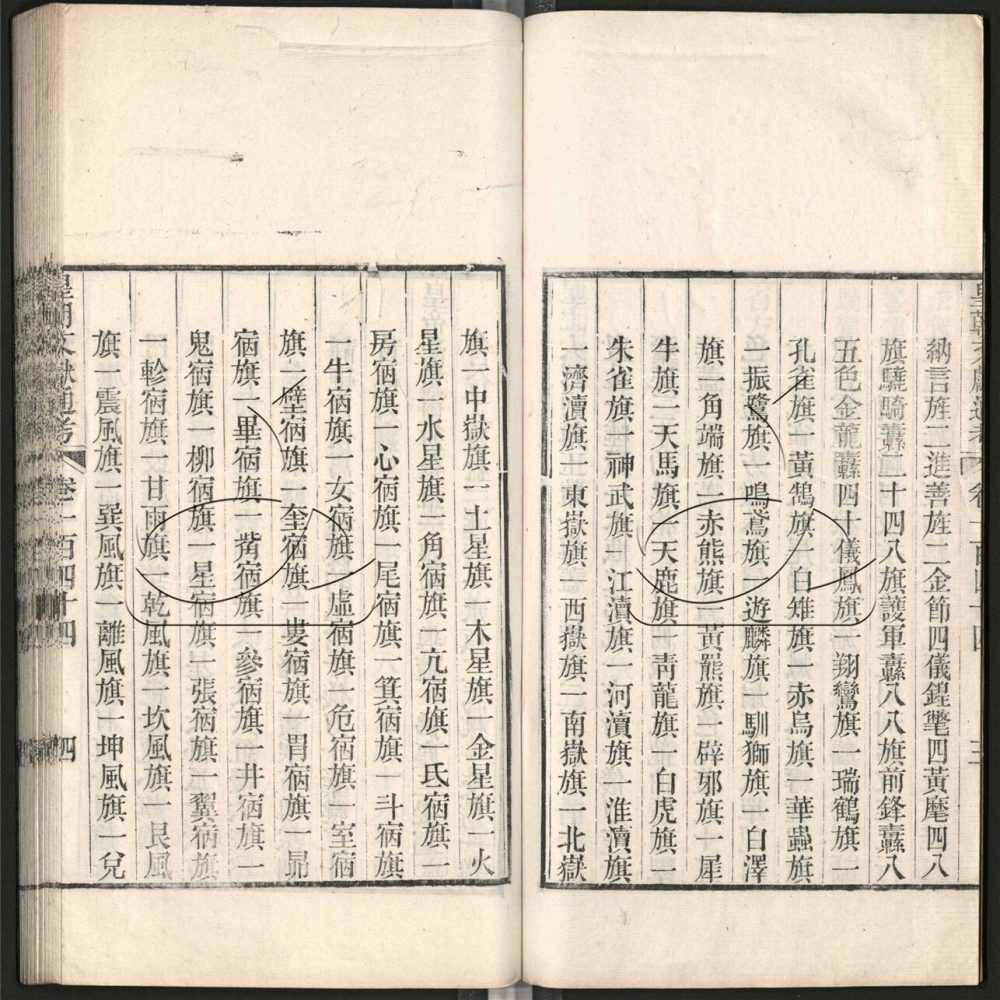 皇朝文獻通考 卷一百四十四 三
納言旌二進善旌二金節四儀鍠氅四黃麾四八
旗驍騎纛二十四八旗護軍纛八八旗前鋒纛八
五色金龍纛四十儀鳳旗一翔鸞旗一瑞鶴旗一
孔雀旗一黃鵠旗一白雉旗一赤烏旗一華蟲旗
一振鷺旗一鳴鳶旗一遊麟旗一馴獅旗一白澤
旗一角端旗一赤熊旗一黃羆旗一辟邪旗一犀
牛旗一天馬旗一天鹿旗一青龍旗一白虎旗一
朱雀旗一神武旗一江瀆旗一河瀆旗一淮瀆旗
一濟瀆旗一東嶽旗一西嶽旗一南嶽旗一北嶽
旗一中嶽旗一土星旗一木星旗一金星旗一火
星旗一水星旗一角宿旗一亢宿旗一氐宿旗一
房宿旗一心宿旗一尾宿旗一箕宿旗一斗宿旗
一牛宿旗一女宿旗一虛宿旗一危宿旗一室宿
旗一壁宿旗一奎宿旗一婁宿旗一胃宿旗一昴
宿旗一畢宿旗一觜宿旗一參宿旗一井宿旗一
鬼宿旗一柳宿旗一星宿旗一張宿旗一翼宿旗
一軫宿旗一甘雨旗一乾風旗一坎風旗一艮風
旗一震風旗一巽風旗一離風旗一坤風旗一兌
皇朝文獻通考 卷一百四十四 四